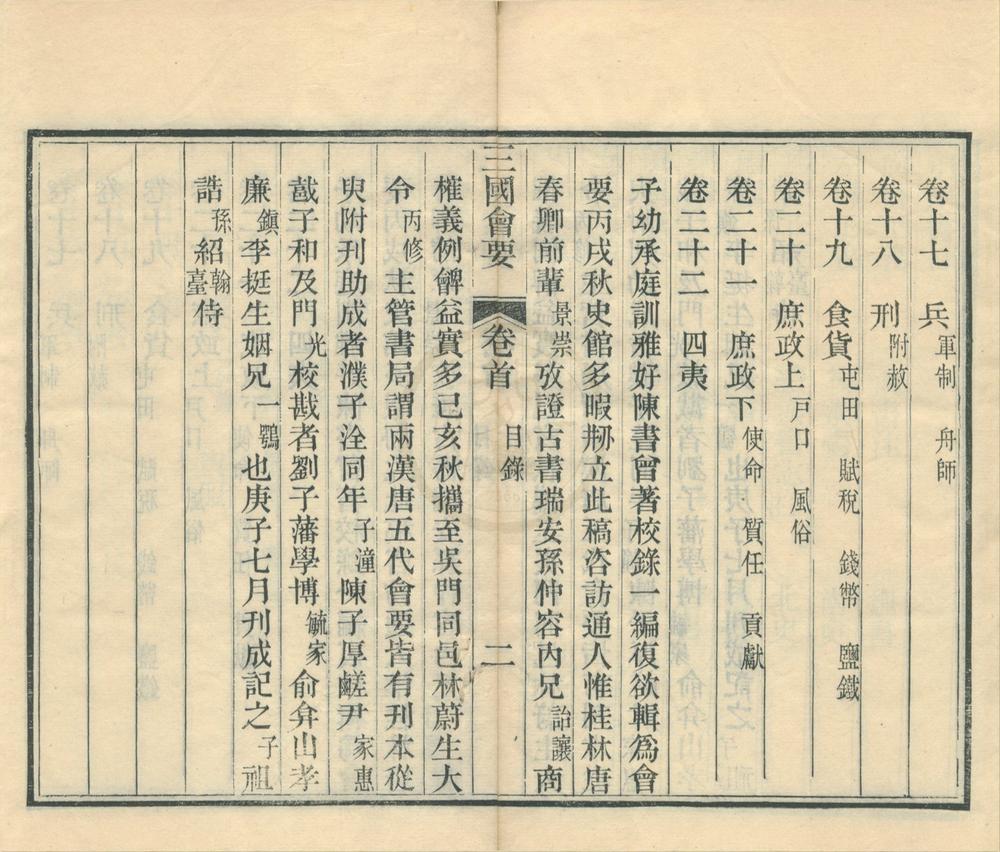 卷十七 兵 軍制 舟師
卷十八 刑 附赦
卷十九 食貨 屯田 賦稅 錢幣 鹽鐵
卷二十 庶政上 戸口 風俗
卷二十一 庶政下 使命 質任 貢獻
卷二十二 四夷
子幼承庭訓雅好陳書曾著校錄一編復欲輯爲會
要丙戌秋史館多暇剙立此稿咨訪通人惟桂林唐
春卿前輩景崇攷證古書瑞安孫仲容內兄詒讓商
三國會要 卷首 目錄 二
榷義例裨益實多己亥秋攜至吳門同邑林蔚生大
令丙修主管書局謂兩漢唐五代會要皆有刊本從
臾附刊助成者濮子泠同年子潼陳子厚鹺尹家惠
葴子和及門光校戡者劉子藩學博毓家俞弅山孝
廉鎭李挺生姻兄一鶚也庚子七月刊成記之子祖
誥孫紹翰臺侍